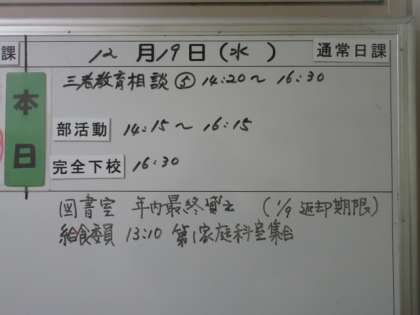 課 12月19日(水) 通常日課
本日
三者教育相談⑤ 14:20~16:30
部活動 14:15~16:15
完全下校 16:30
図書室 年内最終貸出 (1/9 返却期限)
給食委員 13:10 第1家庭科室集合